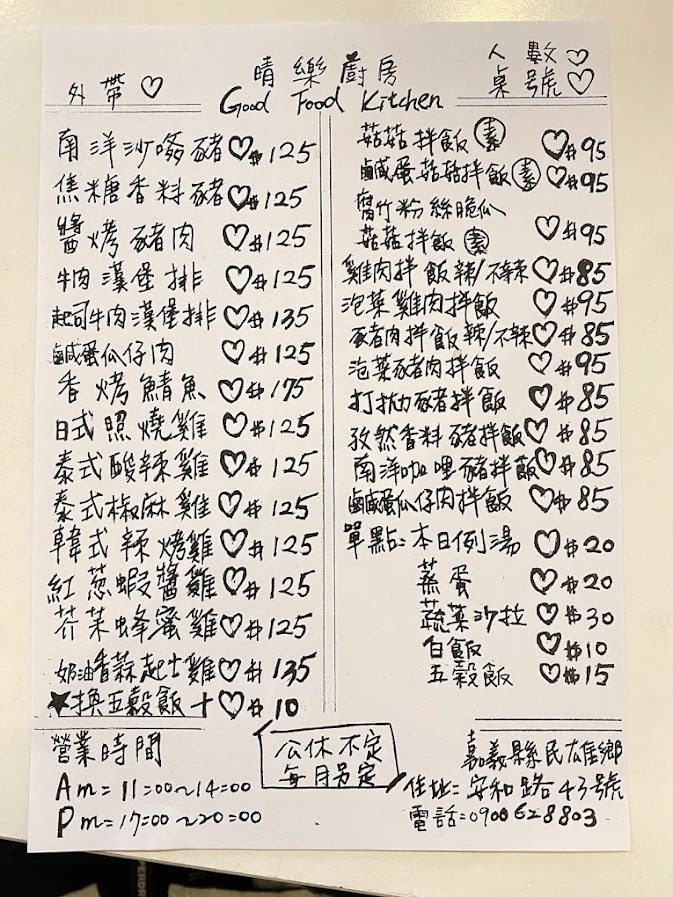 晴樂廚房
Good Food Kitchen
外帶♡
人數♡
桌號♡
南洋沙嗲豬♡$125
焦糖香料豬♡$125
醬烤豬肉♡$125
牛肉漢堡排♡$125
起司牛肉漢堡排♡$135
鹹蛋瓜仔肉♡$125
香烤鯖魚♡$175
日式照燒雞♡$125
泰式酸辣雞♡$125
泰式椒麻雞♡$125
韓式辣烤雞♡$125
紅蔥蝦醬雞♡$125
芥茉蜂蜜雞♡$125
奶油香蒜起士雞♡$135
★換五穀飯+♡$10
菇菇拌飯素♡$95
鹹蛋菇菇拌飯素♡$95
腐竹粉絲脆瓜
菇菇拌飯素♡$95
雞肉拌飯辣/不辣♡$85
泡菜雞肉拌飯♡$95
豬肉拌飯辣/不辣♡$85
泡菜豬肉拌飯♡$95
打拋豬拌飯♡$85
孜然香料豬拌飯♡$85
南洋咖哩豬拌飯♡$85
鹹蛋瓜仔肉拌飯♡$85
單點:本日例湯♡$20
蒸蛋♡$20
蔬菜沙拉♡$30
白飯♡$10
五穀飯♡$15
營業時間
Am=11=00~14=00
Pm=17=00~20=00
公休不定
每月另定
嘉義縣民雄鄉
住址=安和路43號
電話=0900628803